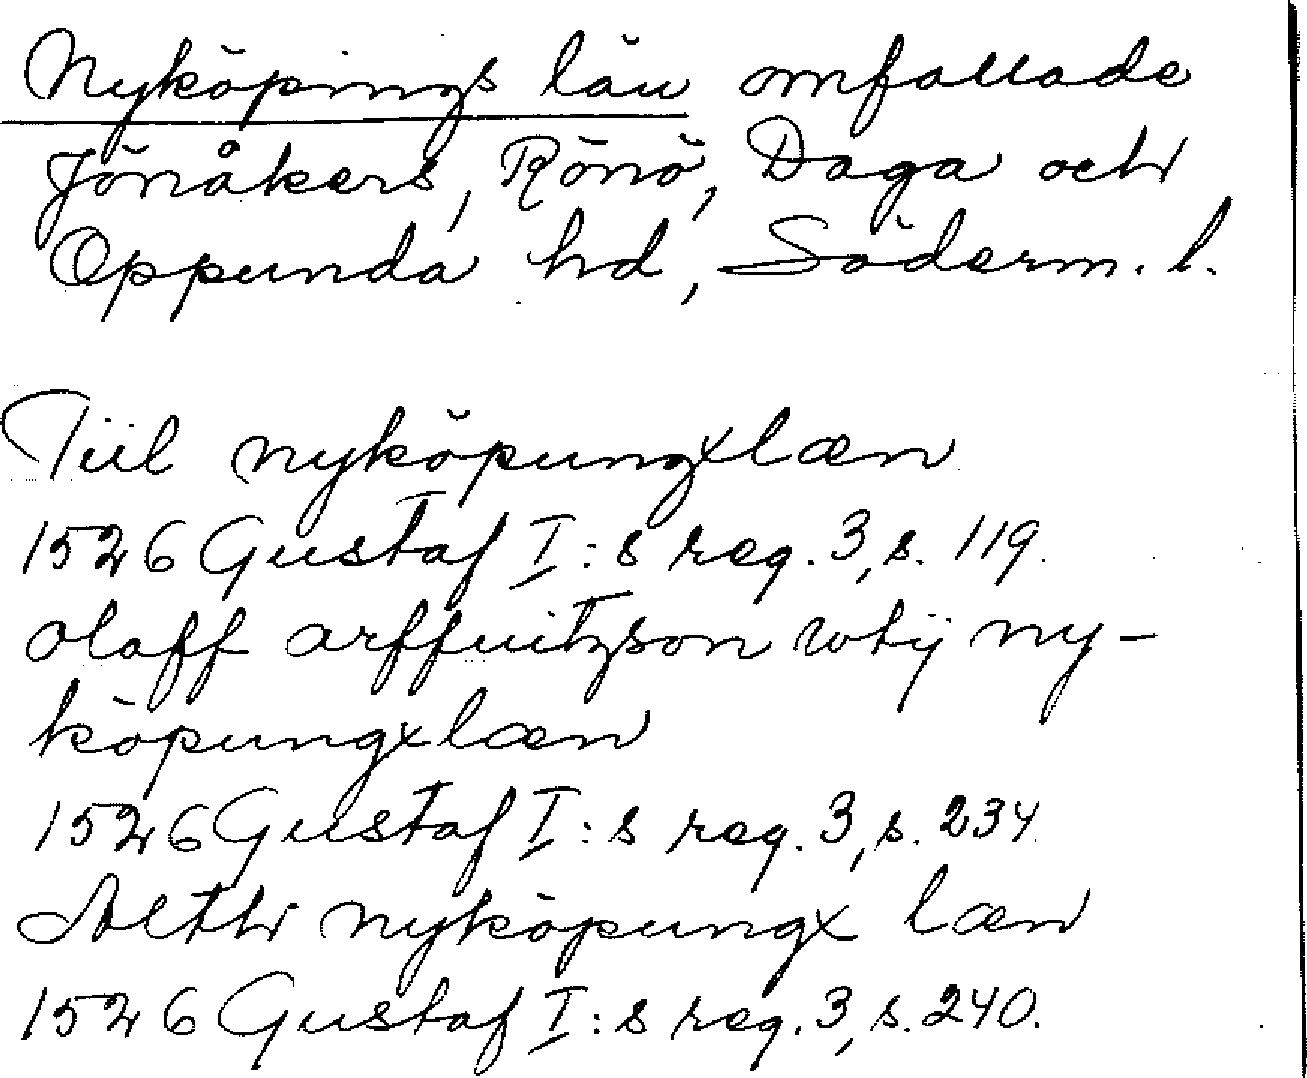 Nyköpings län omfattade
Jönåkers, Rönö, Daga och
Oppunda hd, Söderm. l.
Tiil nyköpungxlæn
1526 Gustaf I:s reg. 3, s. 119.
olaff arffuitzson wtij ny-
köpungxlæn
1526 Gustaf I:s reg. 3, s. 234
Alth nyköpungx læn
1526 Gustaf I:s reg. 3, s. 240.